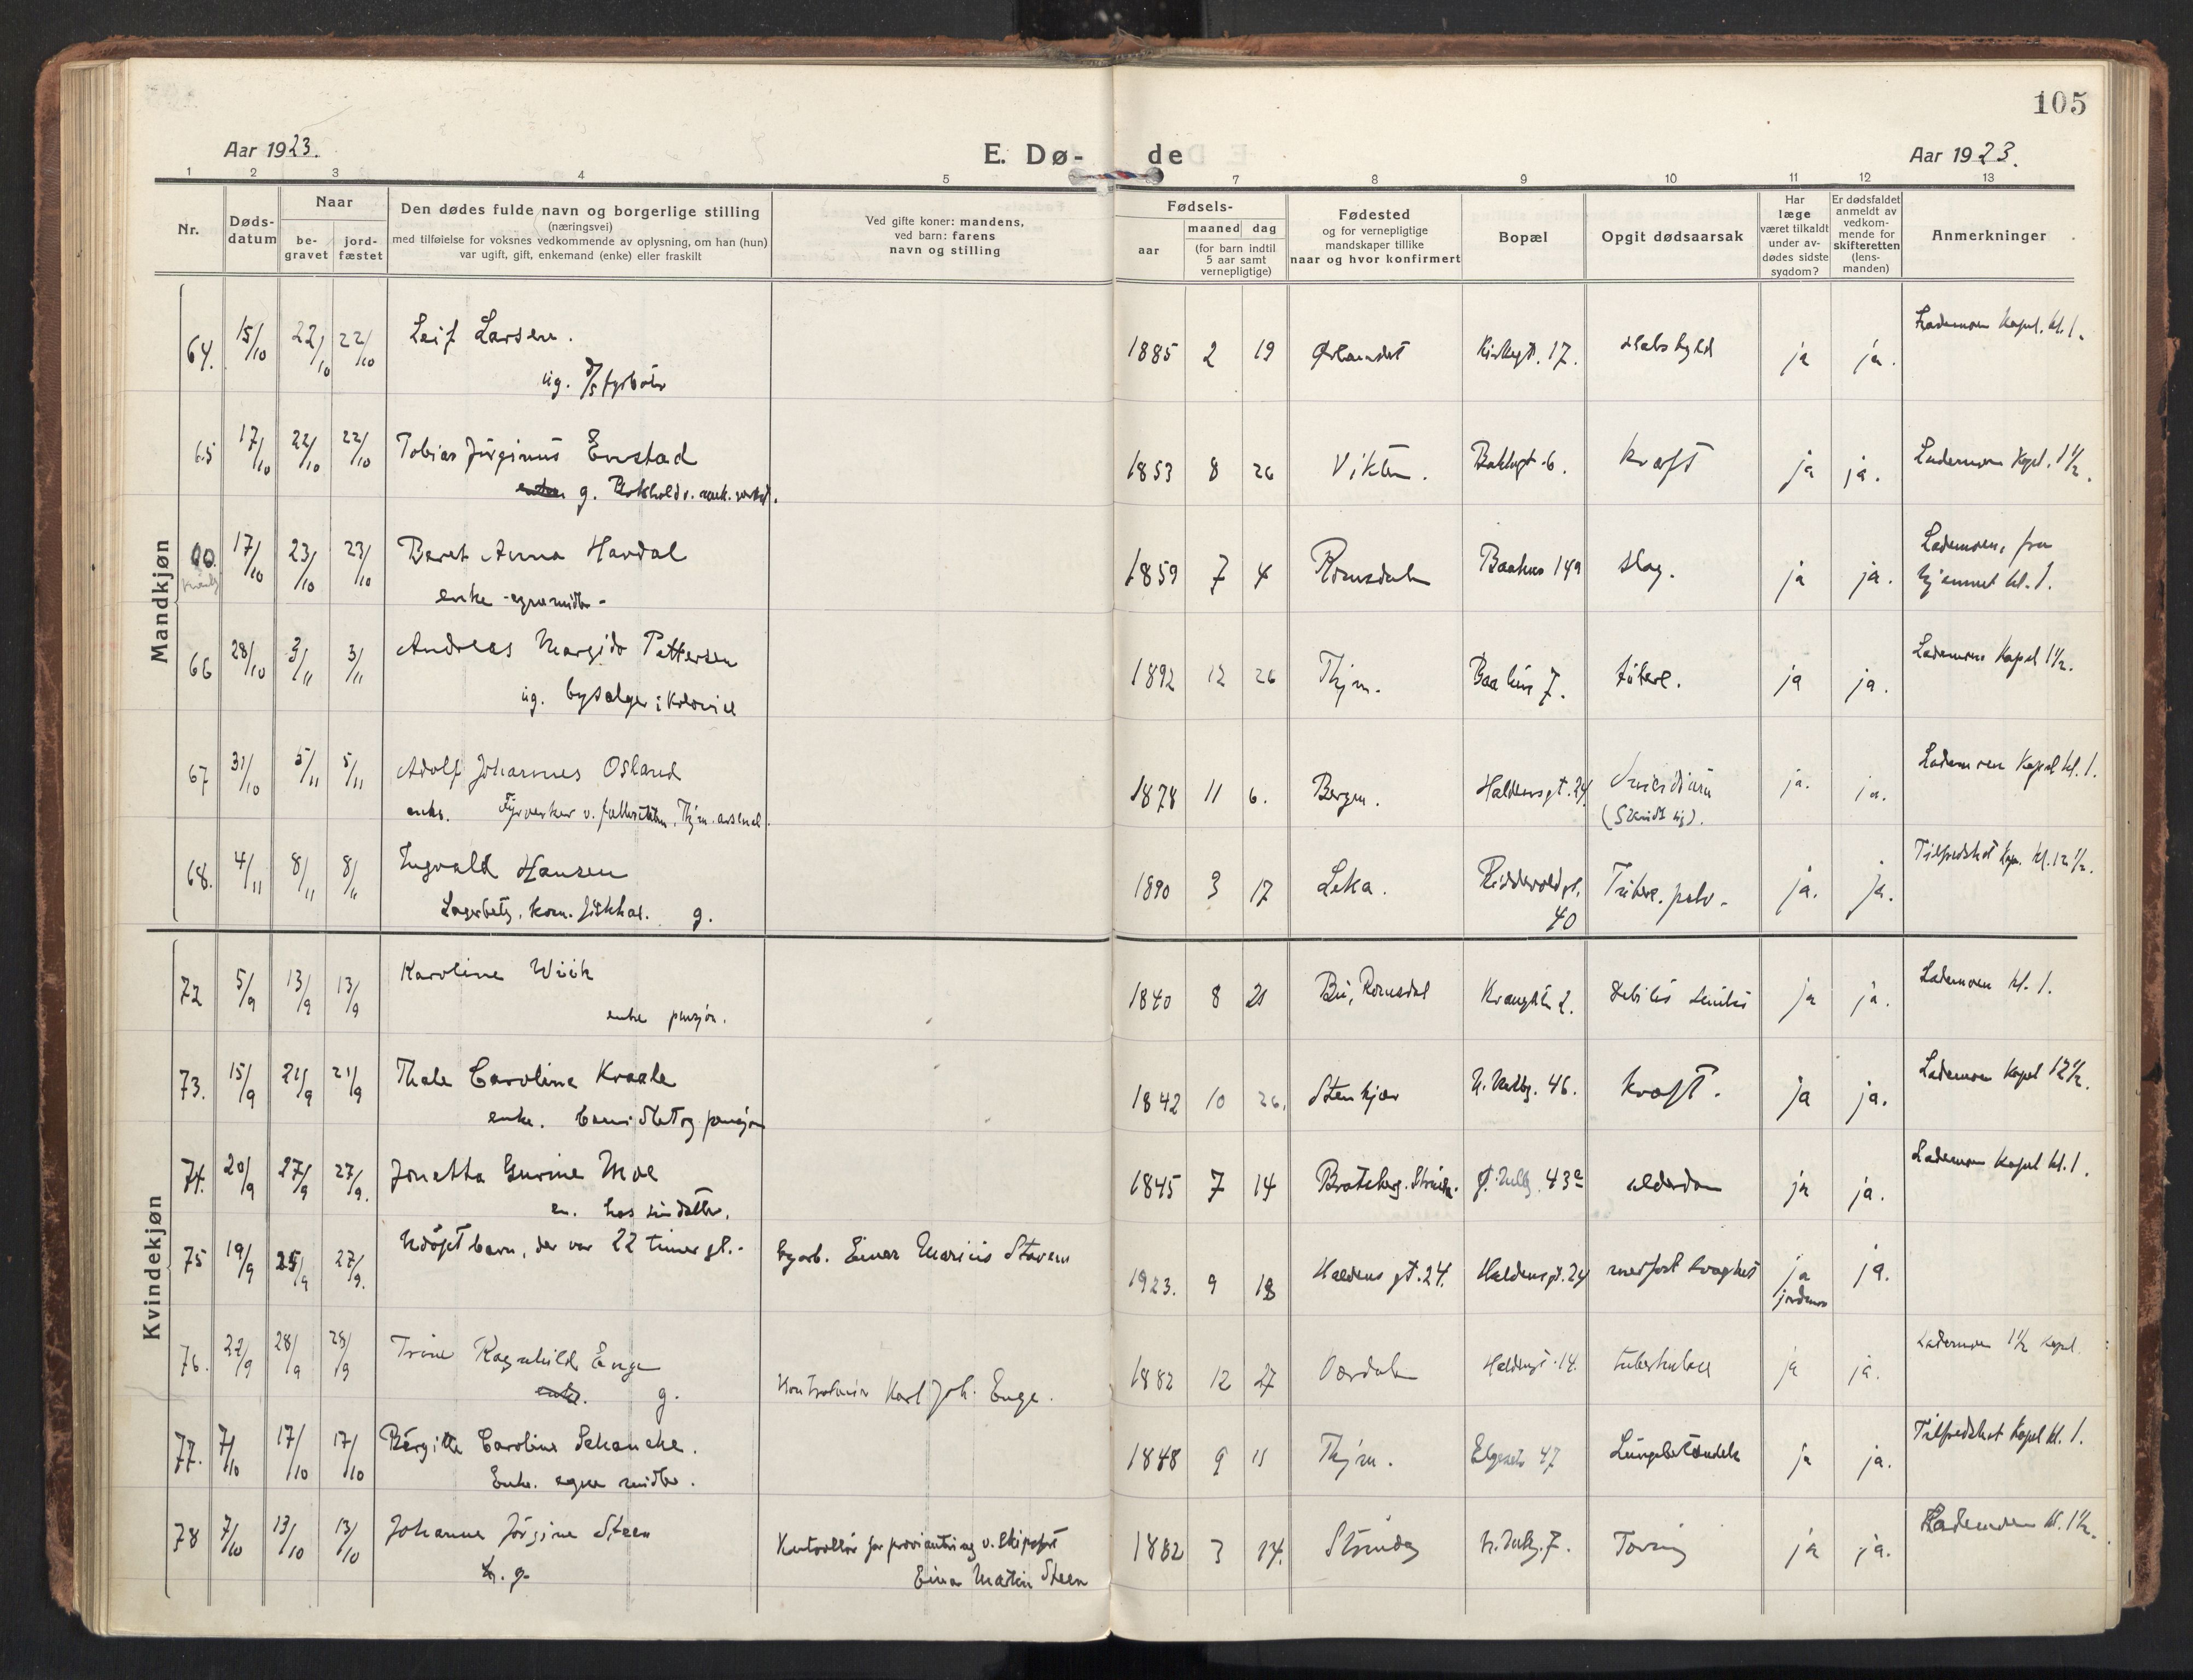 105
Aar 1923.
E. Dø-
de
Aar 1923.
1 2 3 4 5 7 8 9 10 11 12 13
Nr.
Døds-
datum
Naar
be-
gravet
jord-
fæstet
Den dødes fulde navn og borgerlige stilling
(næringsvei)
med tilføielse for voksnes vedkommende av oplysning, om han (hun)
var ugift, gift, enkemand (enke) eller fraskilt
Ved gifte koner: mandens,
ved barn: farens
navn og stilling
Fødsels-
aar
maaned dag
(for barn indtil
5 aar samt
vernepligtige)
Fødested
og for vernepligtige
mandskaper tillike
naar og hvor konfirmert
Bopæl
Opgit dødsaarsak
Har
læge
været tilkaldt
under av-
dødes sidste
sygdom?
Er dødsfaldet
anmeldt av
vedkom-
mende for
skifteretten
(lens-
manden)
Anmerkninger
Mandkjøn
64. 15/10 22/10 22/10 Leif Larsen. 1885 2 19 Ørlandet 17. ja ja. Lademoen Kapel. kl. 1.
ug.
65 17/10 22/10 22/10 Tobias Jørginus Enstad 1853 8 26 Vikten. Bakkegt. 6. kræft ja ja. Lademoen Kapel. 1½.
g.
17/10 23/10 23/10 Beret Anna Havdal 1859 7 4 Romsdalen Baahus 14a slag. ja ja. Lademoen, fra
enke - egne midler - hjemmet kl. 1.
66 28/10 3/11 3/11 Andreas Margido Pettersen 1892 12 26 Thjm. Baahus 7. tuberk. ja ja. Lademoen Kapel 1½.
ug. bysælger i Kolonial
67 31/10 5/11 5/11 Adolf Johannes Osland 1878 11 6. Bergen. Haldensgt. 24. ja. ja. Lademoen Kapel kl. 1.
enkem. Fyrverker v. Thjm. arsenal.
68. 4/11 8/11 8/11 Ingvald Hansen 1890 3 17 Leka. Riddervoldgt. Tuberk. pulm. ja. ja. Tilfredshet Kap. kl. 12½.
g. 40
Kvindekjøn
72 5/9 13/9 13/9 Karoline Wiik 1840 8 21 Bu, Romsdal 2. Debilitas senilis ja ja. Lademoen kl. 1.
enke pensjon.
73. 15/9 21/9 21/9 Thale Caroline Kraale 1842 10 26. Stenkjær 46. kræft. ja ja. Lademoen Kapel 12½.
enke. pensjon
74. 20/9 27/9 27/9. Jonetta Gurine Moe 1845 7 14 Bratsberg. Strinda. 43a alderdom ja ja. Lademoen Kapel kl. 1.
en. hos sin datter.
75 19/9 25/9 27/9. Udøpt barn, der var 22 timer gl. - byarb. Einar Marius Stavem 1923. 9 18 Haldens gt. 24. Haldensgt. 24 medfødt svaghet ja ja.
jordmor
76. 22/9 28/9 28/9 Trine Ragnhild Enge 1882 12 27 Værdalen Haldensgt. 14. tuberkulose ja ja. Lademoen 1½ Kapel.
g. Karl Joh. Enge.
77. 7/10 17/10 17/10 Bergitte Caroline Schancke. 1848 9 11 Thjm. Elgeseter 47 Lungebetændelse ja ja. Tilfredshet Kapel kl. 1.
Enke. egne midler.
78 7/10 13/10 13/10 Johanne Jørgine Steen Kontrollør for proviantering v. 1882 3 14. Strinda 7. Tæring ja ja. Lademoen kl. 1½.
g. Einar Martin Steen